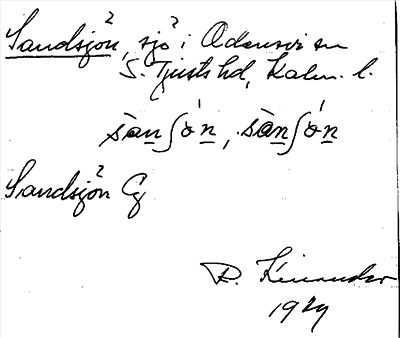 Sandsjön, sjö i Odensvi sn
S. Tjusts hd, Kalm. l.
sànʃó̀n, sànʃón
Sandsjön Gg
R. Kinander
1929